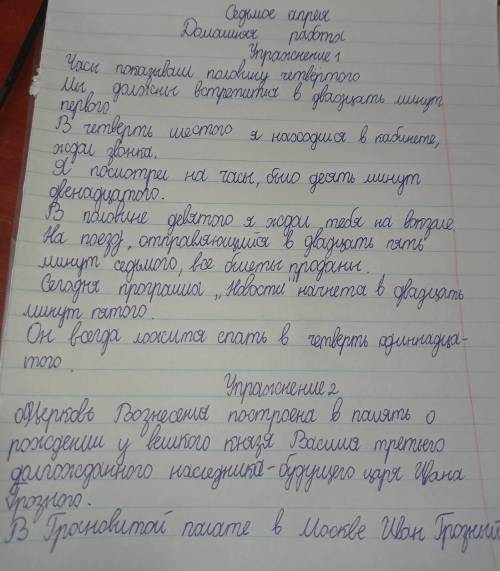 Седьмое апреля
Домашняя работа
Упражнение 1
Часы показывали половину четвёртого
Мы должны встретится в двадцать минут
первого
В четверть шестого я находился в кабинете,
ждал звонка.
Я посмотрел на часы, было десять минут
двенадцатого.
В половине девятого я ждал тебя на вокзале.
На поезд, отправляющийся в двадцать пять
минут седьмого, все билеты проданы.
Сегодня програма „Новости" начнета в двадцать
минут пятого.
Он всегда ложится спать в четверть одиннадца-
того.
Упражнение 2
Церковь Вознесения построена в память о
рождении у великого князя Василия третьего
долгожданного наследника-будущего царя Ивана
Грозного.
В Грановитой палате в Москве Иван Грозный